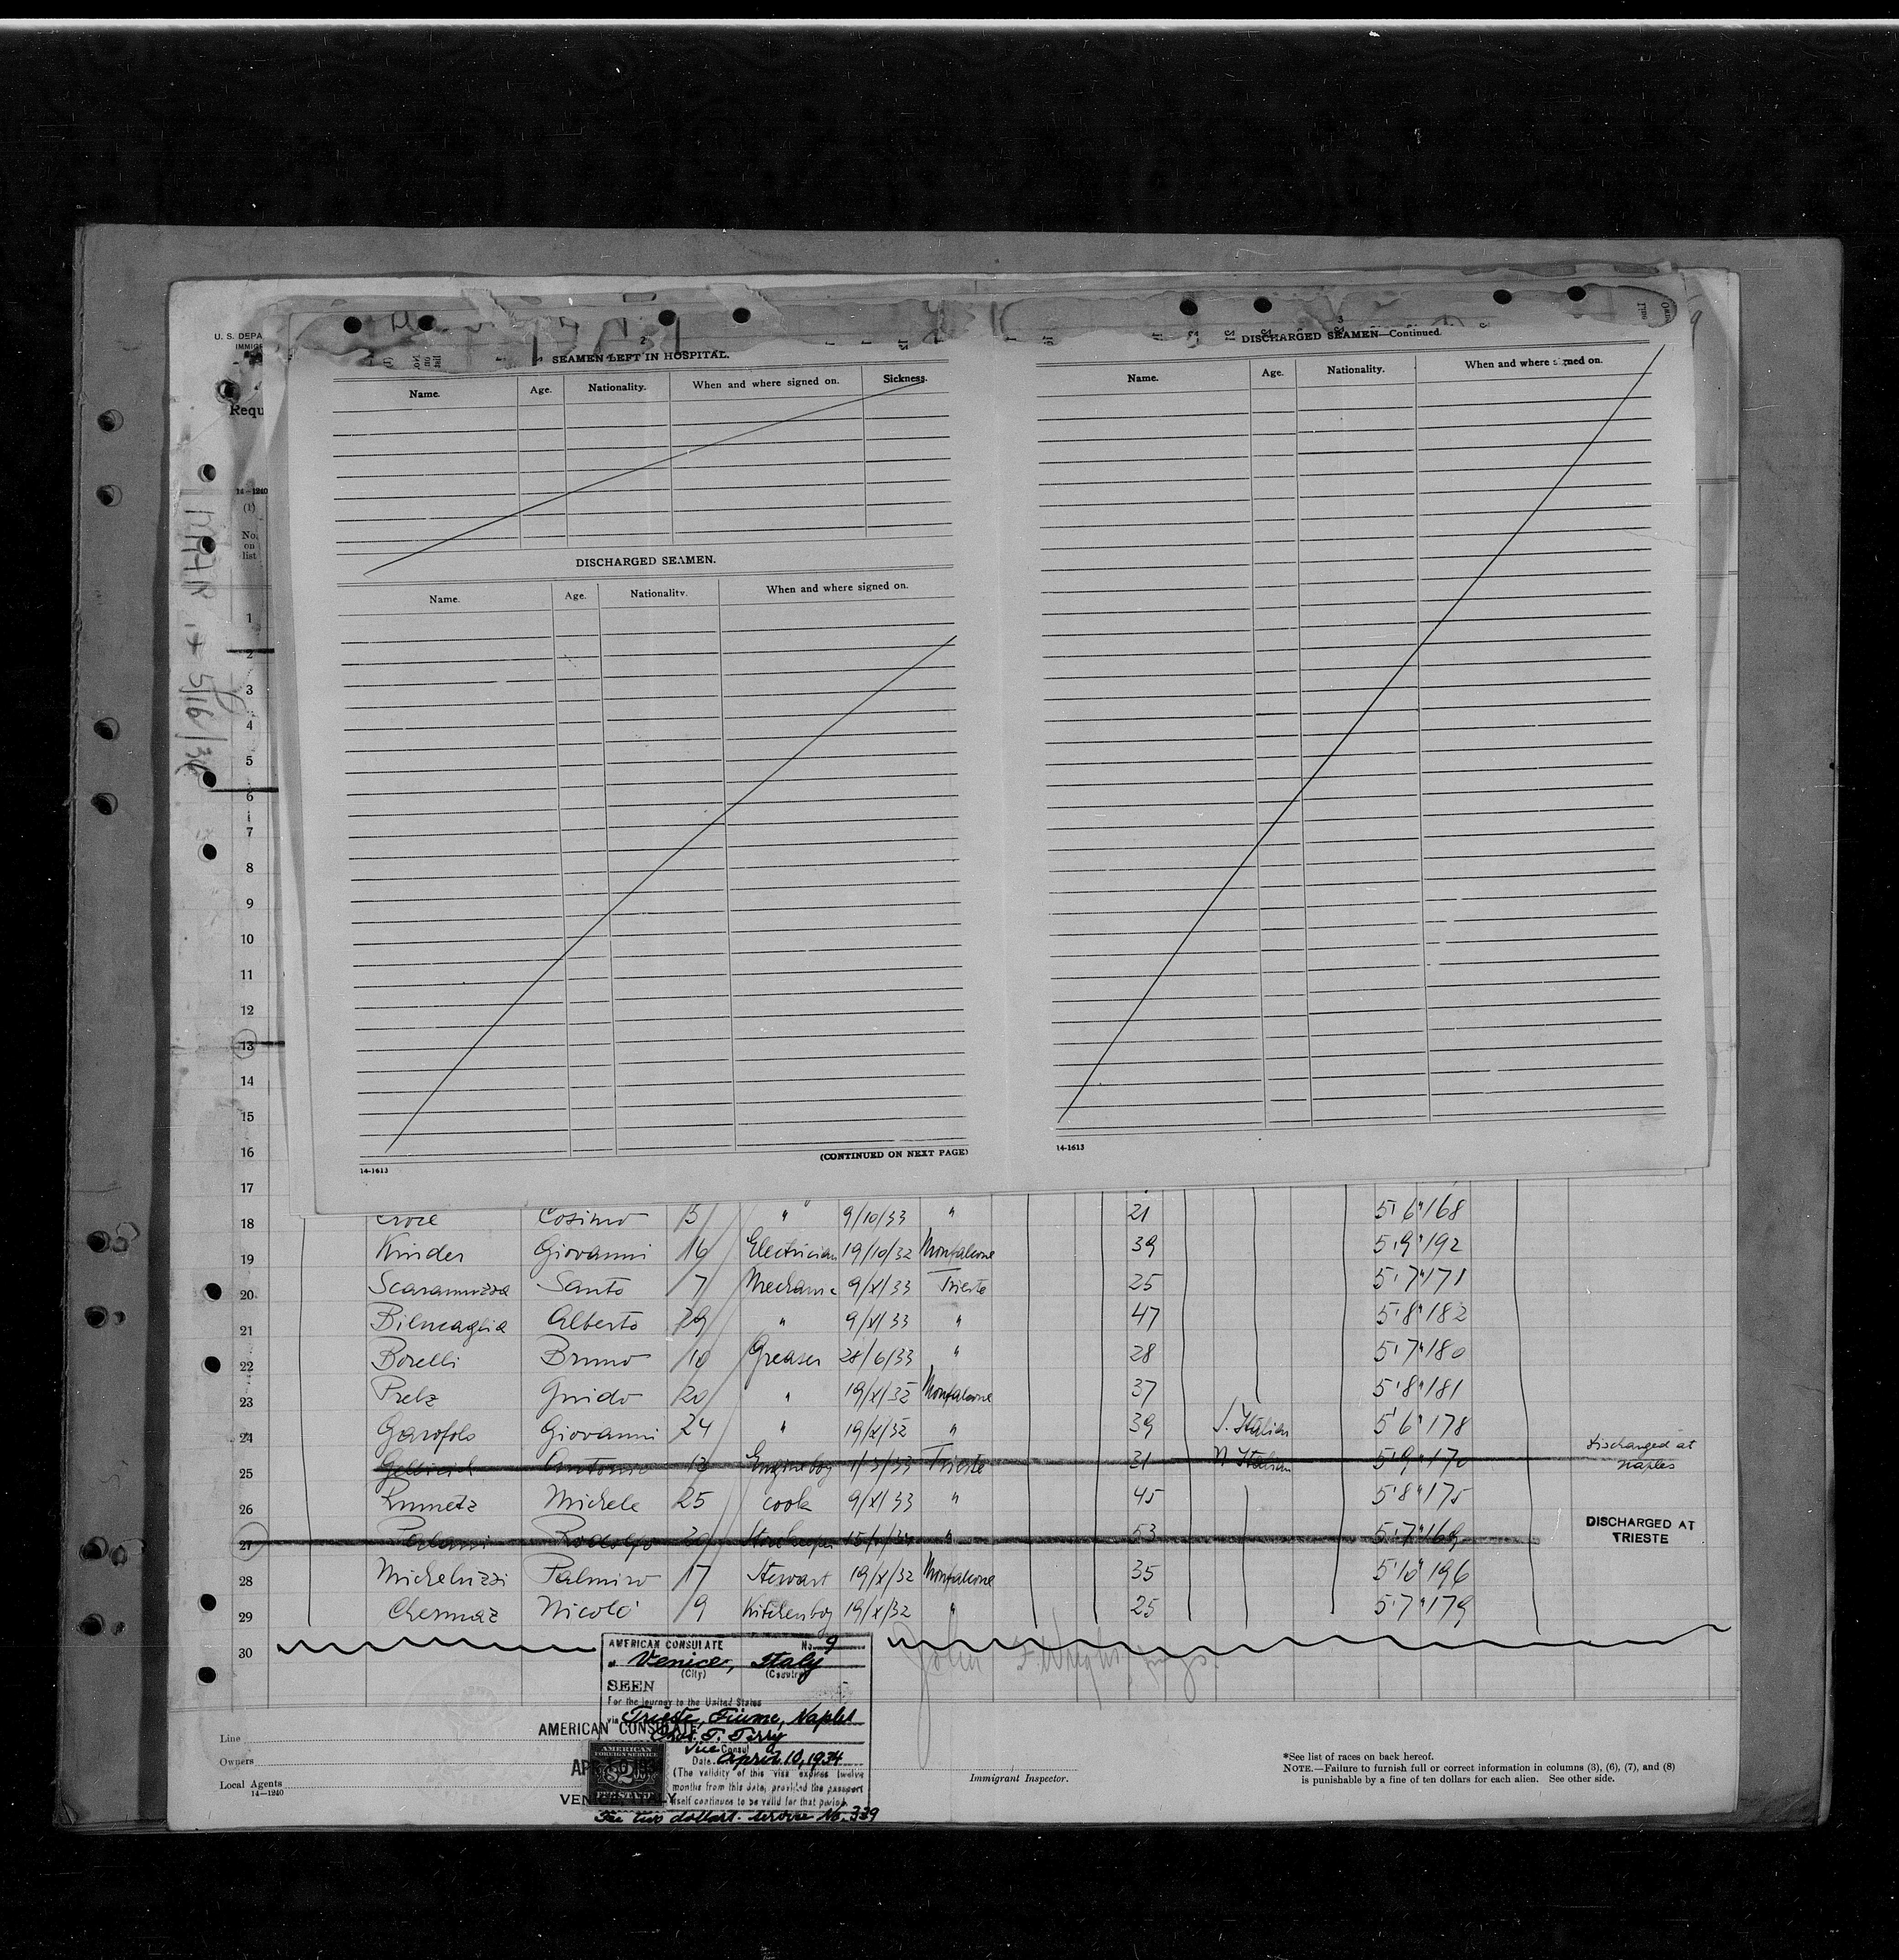 U. S. DEPA
IMMIGR
Requ
14-1240
(1)
No.
on
list
5/16/34
2
SEAMEN LEFT IN HOSPITAL.
Name. Age. Nationality. When and where signed on. Sickness.
DISCHARGED SEAMEN.
Name. Age. Nationality. When and where signed on.
14-1613
(CONTINUED ON NEXT PAGE)
3
DISCHARGED SEAMEN—Continued.
Name. Age. Nationality. When and where signed on.
14-1613
1
2
3
4
5
6
7
8
9
10
11
12
13
14
15
16
17
18 Croce Cosimo 5 " 9/10/33 " 21 5' 6" 168
19 Kinder Giovanni 16 Electrician 19/10/32 Monfalcone 39 5' 9" 192
20 Scaramuzza Santo 7 Mechanic 9/XI/33 Trieste 25 5' 7" 171
21 Bilucaglia Alberto 29 " 9/XI/33 " 47 5' 8" 182
22 Borelli Bruno 10 Greaser 28/6/33 " 28 5' 7" 180
23 Prelz Guido 20 " 19/X/32 Monfalcone 37 5' 8" 181
24 Garofolo Giovanni 24 " 19/X/32 " 39 S. Italian 5' 6" 178
25 Antonio 13 Engineboy 1/3/33 Trieste 31 N Italian 5' 9" 170 Discharged at Naples
26 Rumetz Michele 25 cook 9/XI/33 " 45 5' 8" 175
27 Rodolfo 30 Storekeeper " 53 5' 7" 169 DISCHARGED AT TRIESTE
28 Micheluzzi Palmiro 17 Stewart 19/X/32 Monfalcone 35 5' 10" 196
29 Chermaz Nicolò 9 Kitchenboy 19/X/32 " 25 5' 7" 179
30
John F. Wright
AMERICAN CONSULATE No. 9
at Venice, Italy
(City) (Country)
SEEN
For the journey to the United States
via Trieste, Fiume, Naples
T. Terry
Vice Consul
Date April 10, 1934
(The validity of this visa expires twelve
months from this date, provided the passport
itself continues to be valid for that period.
Fee two dollars. Service No. 339
AMERICAN CONSULATE
APR 10 1934
VENICE, ITALY
AMERICAN
FOREIGN SERVICE
$2
FEE STAMP
Line
Owners
Local Agents
14-1240
Immigrant Inspector.
*See list of races on back hereof.
NOTE.—Failure to furnish full or correct information in columns (3), (6), (7), and (8)
is punishable by a fine of ten dollars for each alien. See other side.